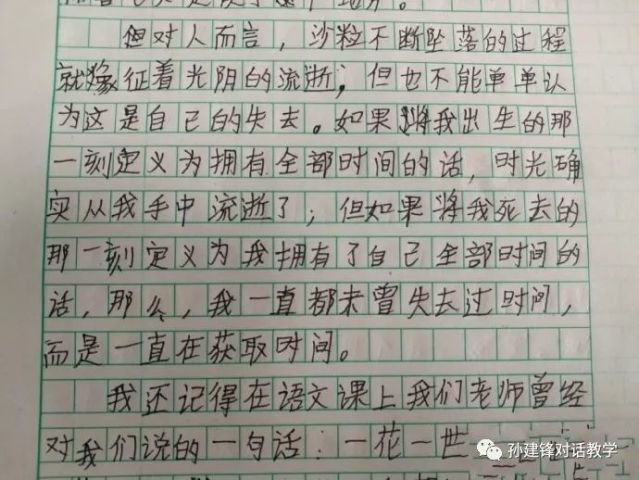 但对人而言，沙粒不断坠落的过程
就像征着光阴的流逝；但也不能单单认
为这是自己的失去。如果将我出生的那
一刻定义为拥有全部时间的话，时光确
实从我手中流逝了；但如果将我死去的
那一刻定义为我拥有了自己全部时间的
话，那么，我一直都未曾失去过时间，
而是一直在获取时间。
我还记得在语文课上我们老师曾经
对我们说的一句话：一花一世
孙建锋对话教学